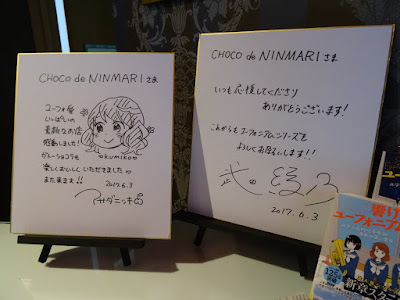 CHOCO de NINMARI さま
ユーフォ愛
いっぱいの
素敵なお店
感動しました!
ガトーショコラも
楽しくおいしくいただきました
また来ます!!
okumiko
2017.6.3
アサダニッキ
CHOCO de NINMARI さま
いつも応援してくださり
ありがとうございます!
これからもユーフォニアムシリーズを
よろしくお願いします!!
武田綾乃
2017.6.3
響け!
ユーフォニアム
新章スタート